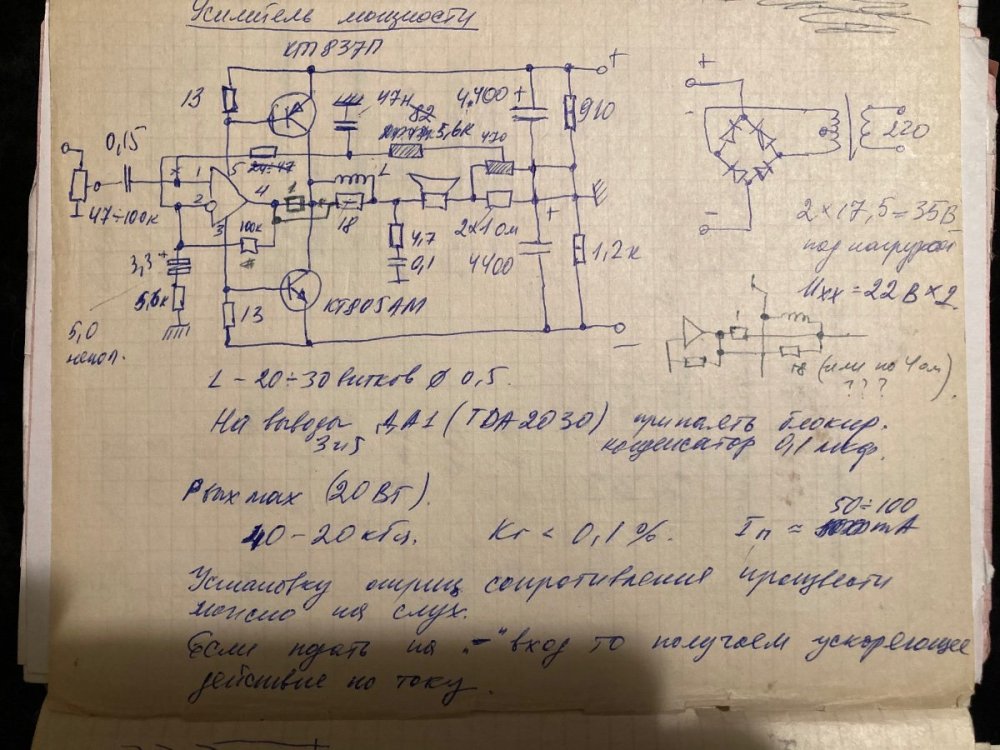 Усилитель мощности
КТ837П
13
47н
82
5,6к
470
4.400 +
910
+
+
-
220
0,15
47÷100к
x
1
2
3
4
5
24÷47
1
L
18
100к
4,7
0,1
2х1 ом
+
4400
1,2к
3,3 +
5,6к
5,0
непол.
13
КТ805АМ
-
-
2 × 17,5 = 35В
под нагрузкой
Uхх = 22 В × 2
1
18 (или по 4 ом)
???
L - 20 ÷ 30 витков ϕ 0,5.
На выводы ДА1 (TDA2030) припаять блокир.
3 и 5 конденсатор 0,1 мкф.
Рвых max (20 Вт).
40 - 20 кгц. Кг < 0,1 %. Iп ≈ 50÷100 mA
Установку сопротивления произвести
можно на слух.
Если подать на „-“ вход то получаем ускоряющее
действие по току.